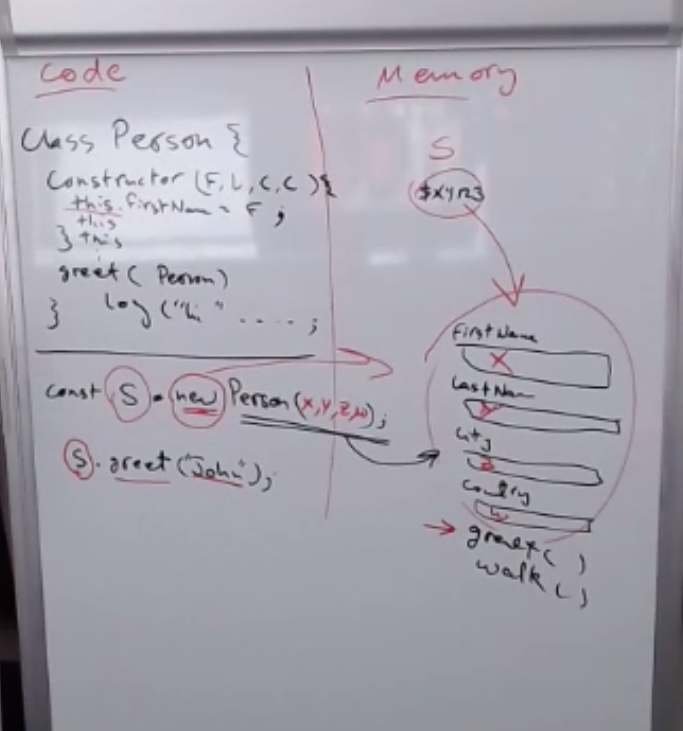 Code
Class Person {
Constructor (F, L, C, C ) {
this.firstName = F ;
this
} this
greet ( Person)
} log ("hi" .... ;
const S = new Person(X,Y,Z,W);
S.greet("John");
Memory
S
$xyr23
FirstName
X
LastNam
Y
City
Z
Country
W
greet ( )
walk ( )